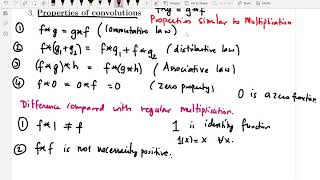 3 Properties of convolutions f*g = g*f
Properties similar to Multiplication
① f*g = g*f (Commutative law)
② f*(g₁+g₂) = f*g₁ + f*g₂ (distributive law)
③ (f*g)*h = f*(g*h) (Associative law)
④ f*0 = 0*f = 0 (zero property) 0 is a zero function
Difference compared with regular multiplication.
① f*1 ≠ f 1 is identity function
1(x) = x ∀x.
② f*f is not necessarily positive.